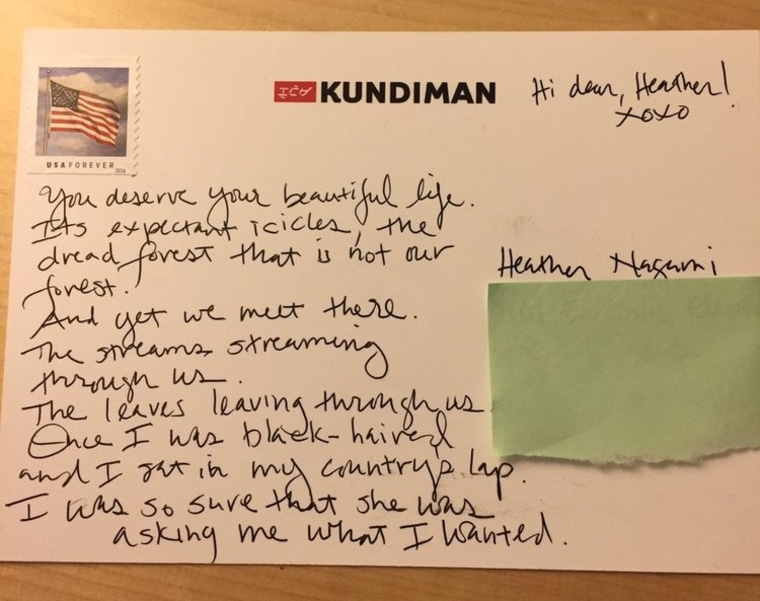 USA FOREVER 2016
KUNDIMAN
Hi dear, Heather!
XOXO
You deserve your beautiful life.
Its expectant icicles, the
dread forest that is not our
forest.
And yet we meet there.
The streams streaming
through us.
The leaves leaving through us.
Once I was black-haired
and I sat in my country's lap.
I was so sure that she was
asking me what I wanted.
Heather Nagami